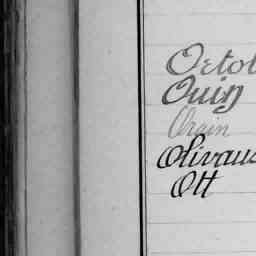 Octob
Quin
Orain
Olivaus
Ott